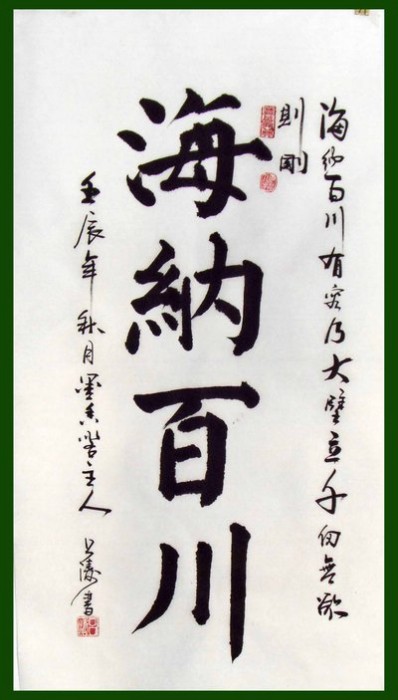 海納百川有容乃大壁立千仞無欲
則剛
海納百川
壬辰年秋月墨香堂主人
書